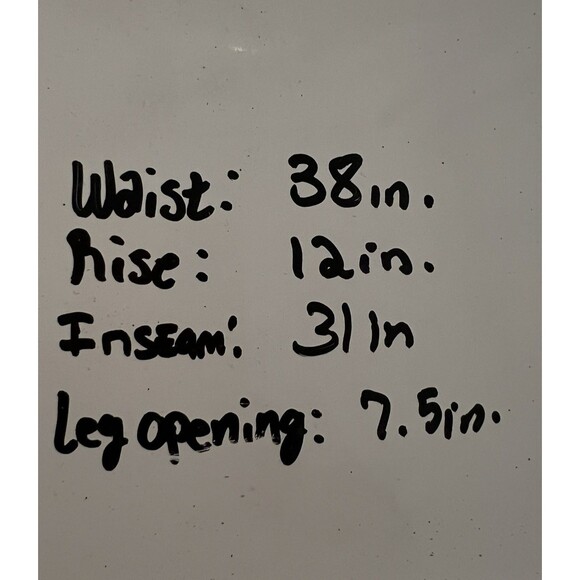 Waist: 38in.
Rise: 12in.
Inseam: 31in
Leg opening: 7.5in.